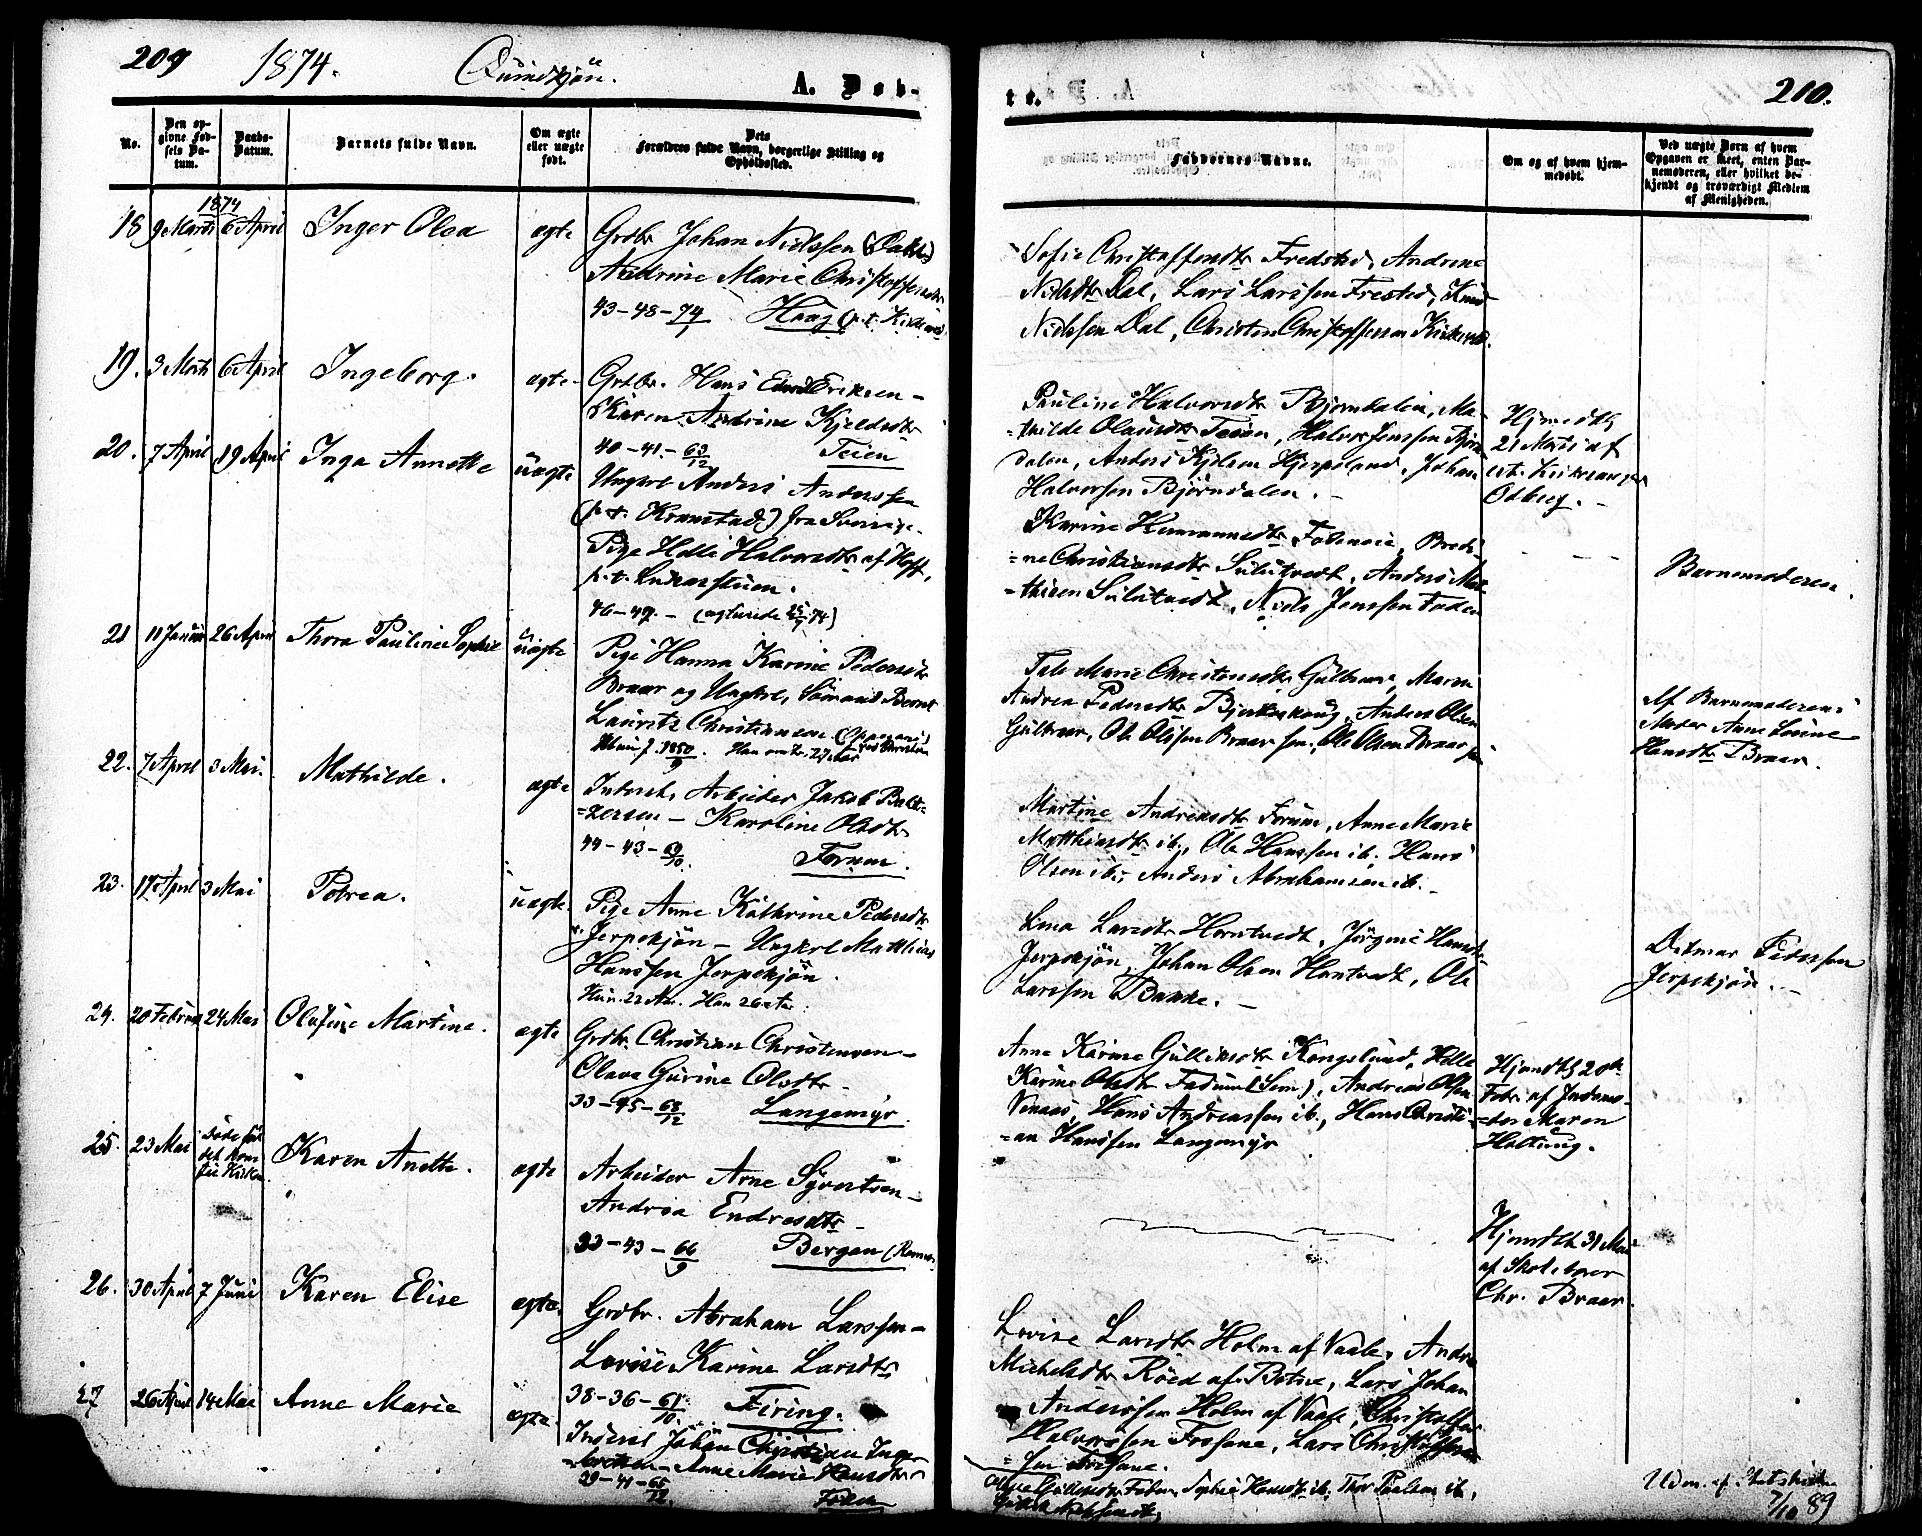 209
1874.
Quindkjön.
A. Døb-
No.
Den op-
givne Fød-
sels Da-
tum.
Daabs-
Datum.
Barnets fulde Navn.
Om ægte
eller uægte
født.
Forældres fulde Navn, borgerlige Stilling og
Opholdssted.
1874
18 9 Marts 6 April Inger Olea ægte Grdbr. Johan Nielssen
Andrine Marie Christoffersdtr
43-48-74 Haag (p.t.
19. 3 Marts 6 April Ingeborg. ægte Grdbr. Hans Eriksen -
Karen Andrine Kjeldsdtr
40-41-63/12 Teien
20. 7 April 19 April Inga Annette uægte Ungkrl Anders Anderssen
(p.t. Kranstad) fra Sverrige.
Pige Helle Halvorsdtr af Hoff,
p.t.
46-47. -
21 11 Januar 26 April Thora Pauline Sophie uægte Pige Hanna Karine Pedersdtr
Braar og Ungkrl. Sömand Bernt
Laurits Christiansen
Hun f. 1850/9. Han omtr. 27 Aar
22. 7 April 3 Mai. Mathilde. ægte Inderst, Arbeider Jakob Balt-
=zersen - Karoline Olsdtr
44-43-69/10. Forum.
23. 17 April 3 Mai Petrea. uægte. Pige Anne Kathrine Pedersdtr
Jerpekjön - Ungkrl Matthias
Hanssen Jerpekjön.
Hun 22 Aar. Han 26
24. 20 Februar 24 Mai Olufine Martine. ægte Grdbr. Christian Christensen -
Olava Gurine Olsdtr -
33-45-68/12 Langemyr.
25. 23 Mai døde før
det kom
til Kirken. Karen Anette. ægte Arbeider Arne Syvertsen -
Andrea Endresdtr -
33-43-66/9 Bergan
26. 30 April 7 Juni Karen Elise ægte. Grdbr. Abraham Larssen -
Lovise Karine Larsdtr
38-36-61/10. Firing.
27 26 April 14 Mai Anne Marie ægte. Inderst Johan Christian Inge-
Anne Marie Hansdtr
29-41-65/12.
210.
te.
Faddernes Navne.
Om og af hvem hjem-
medøbt.
Ved uægte Børn af hvem
Opgaven er skeet, enten Bar-
nemoderen, eller hvilket be-
kjendt og troværdigt Medlem
af Menigheden.
Sofie Christoffersdtr Fredsted, Andrene
Nielsdtr Dal, Lars Larssen Frested, Knud
Nielssen Dal, Christen Christofferssen
Pauline Halvorsdtr Bjørndalen, Ma-
=thilde Olausdtr Teien, Halvor Jenssen Bjørn
dalen, Anders Kjelsen Hjerpeland, Johan
Halvorsen Bjørndalen. -
Hjemedth
21 Marts af
Odberg. -
Karine Hermannsdtr Fademeie, Bredi-
=ne Christiansdtr Sulutvedt, Anders Mat-
=thisen Sulutvedt, Niels Jenssen Faden
Barnemoderen.
Tale Marie Christensdtr Gulhaus, Maren
Andrea Pedersdtr Bjerkeskoug, Anders Olsen
Gulhaar, Ole Olssen Braar sen., Ole Olsen Braar jun
Af Barnemoderens
Moder Anne Lovine
Hansdtr Braar.
Martine Andreasdtr Forum, Anne Marie
Matthiasdtr ib., Ole Hanssen ib., Hans
Olsen ib., Anders Abrahamsen ib. -
Lina Larsdtr Horntvedt, Jörgine Hansdtr
Jerpekjön, Johan Olsen Horntvedt, Ole
Larssen Bakke. -
Ditmar Pedersen
Jerpekjön. -
Anne Karine Gulliksdtr Kongslund, Helle
Karine Olsdtr Fadum (Sem), Andreas Olsen
Venaas, Hans Andreassen ib., Hans Christi-
=an Hanssen Langemyr
Hjemdth 20de
Febr. af Jordmo-
=der Maren
Holtung.
Hjemdth 31 Mai
af Skolelærer
Chr. Braar.
Lovise Larsdtr Holm af Vaale, Andrea
Michelsdtr Röed af Botne, Lars Johan
Anderssen Holm af Vaale, Christoffer
Halvorssen Frosane, Lars Christoffer-
=sen Frosane.
Sophie Hansdtr ib. Thor Paulsen ib.,
7/10 89